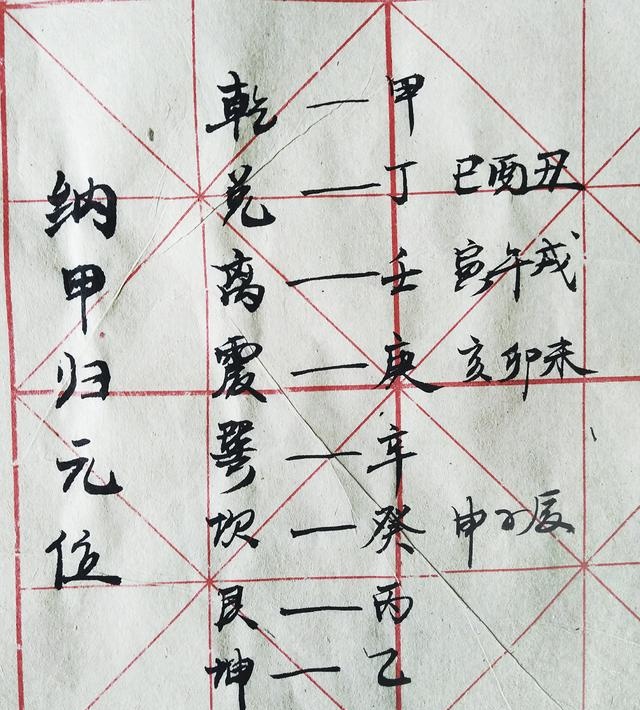 纳甲归元位
乾 — 甲
兑 — 丁 巳酉丑
离 — 壬 寅午戌
震 — 庚 亥卯未
巽 — 辛
坎 — 癸 申子辰
艮 — 丙
坤 — 乙